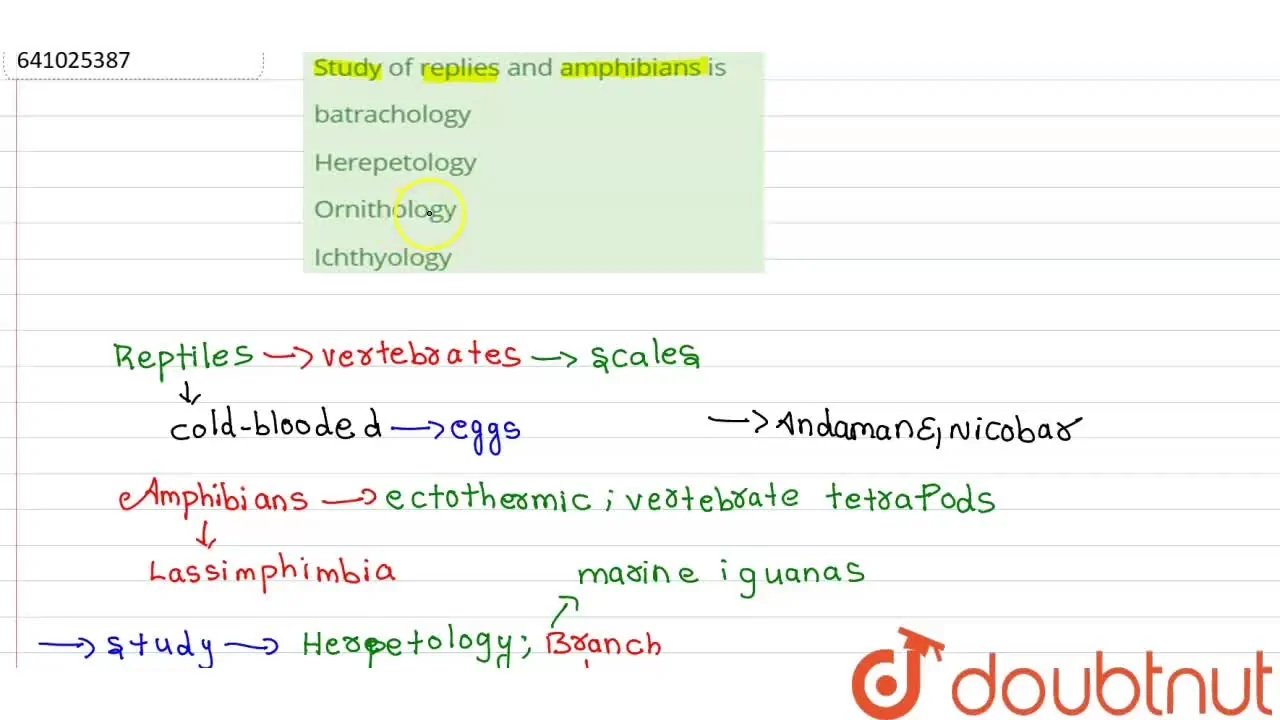 641025387
Study of replies and amphibians is
batrachology
Herepetology
Ornithology
Ichthyology
Reptiles → vertebrates → scales
↓
cold-blooded → eggs → Andaman & Nicobar
Amphibians → ectothermic ; vertebrate tetrapods
↓
Lassimphimbia marine iguanas
→ study → Herpetology; Branch
doubtnut